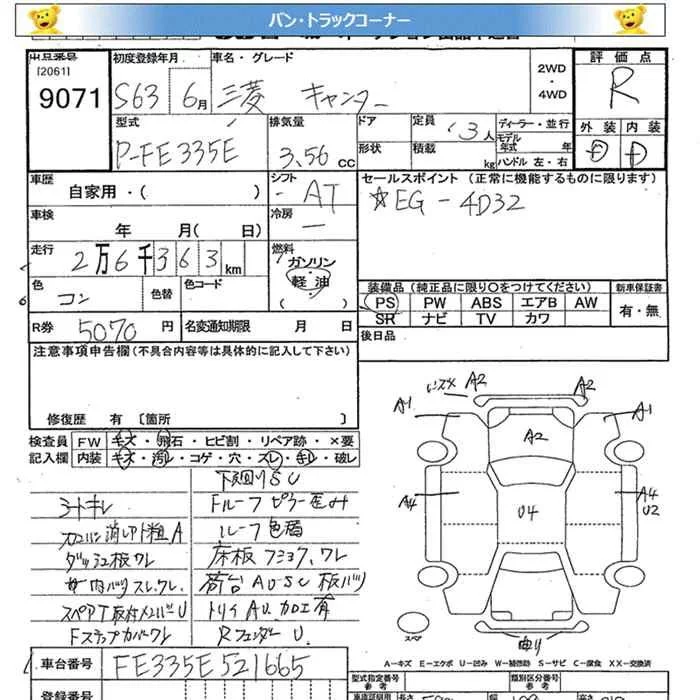 バン・トラックコーナー
出品番号
[2061]
9071
初度登録年月
S63 6月
車名・グレード
三菱 キャンター
2WD
・
4WD
評価点
R
外装 内装
D D
型式
P-FE335E
排気量
3.56 CC
ドア
形状
定員 3人
積載 kg
ディーラー・並行
モデル年式 年
ハンドル 左・右
車歴
自家用・( )
シフト
AT
セールスポイント (正常に機能するものに限ります)
☆EG-4D32
車検
年 月( 日)
冷房
走行
2万6千363km
燃料
ガソリン
軽油
( )
色
コン
色替
色コード
装備品 (純正品に限り○をつけてください)
PS PW ABS エアB AW
SR ナビ TV カワ
新車保証書
有・無
R券 5070円
名変通知期限 月 日
後日品
注意事項申告欄 (不具合内容等は具体的に記入して下さい)
修復歴 有 [箇所 ]
検査員 FW キズ・飛石・ヒビ割・リペア跡・×要
記入欄 内装 キズ・汚レ・コゲ・穴・スレ・キレ・破レ
下廻りSU
シートキレ
ドルーフピラー歪み
消レアト粗A
ルーフ色褪
ダッシュ板ワレ
床板 ワレ
内バリスレ、ワレ
荷台AU-SU板バツ
スペアT取付メンバーU
トリイAU.加工有
FステップカバーワレU
RフェンダーU
A2 A2
A1 A1
A2
A4 U4 A4
U2
スペア
曲り
A-キズ E-エクボ U-凹み W-補修跡 S-サビ C-腐食 XX-交換済
車台番号 FE335E521665
登録番号
型式指定番号
参考
類別区分番号
参考